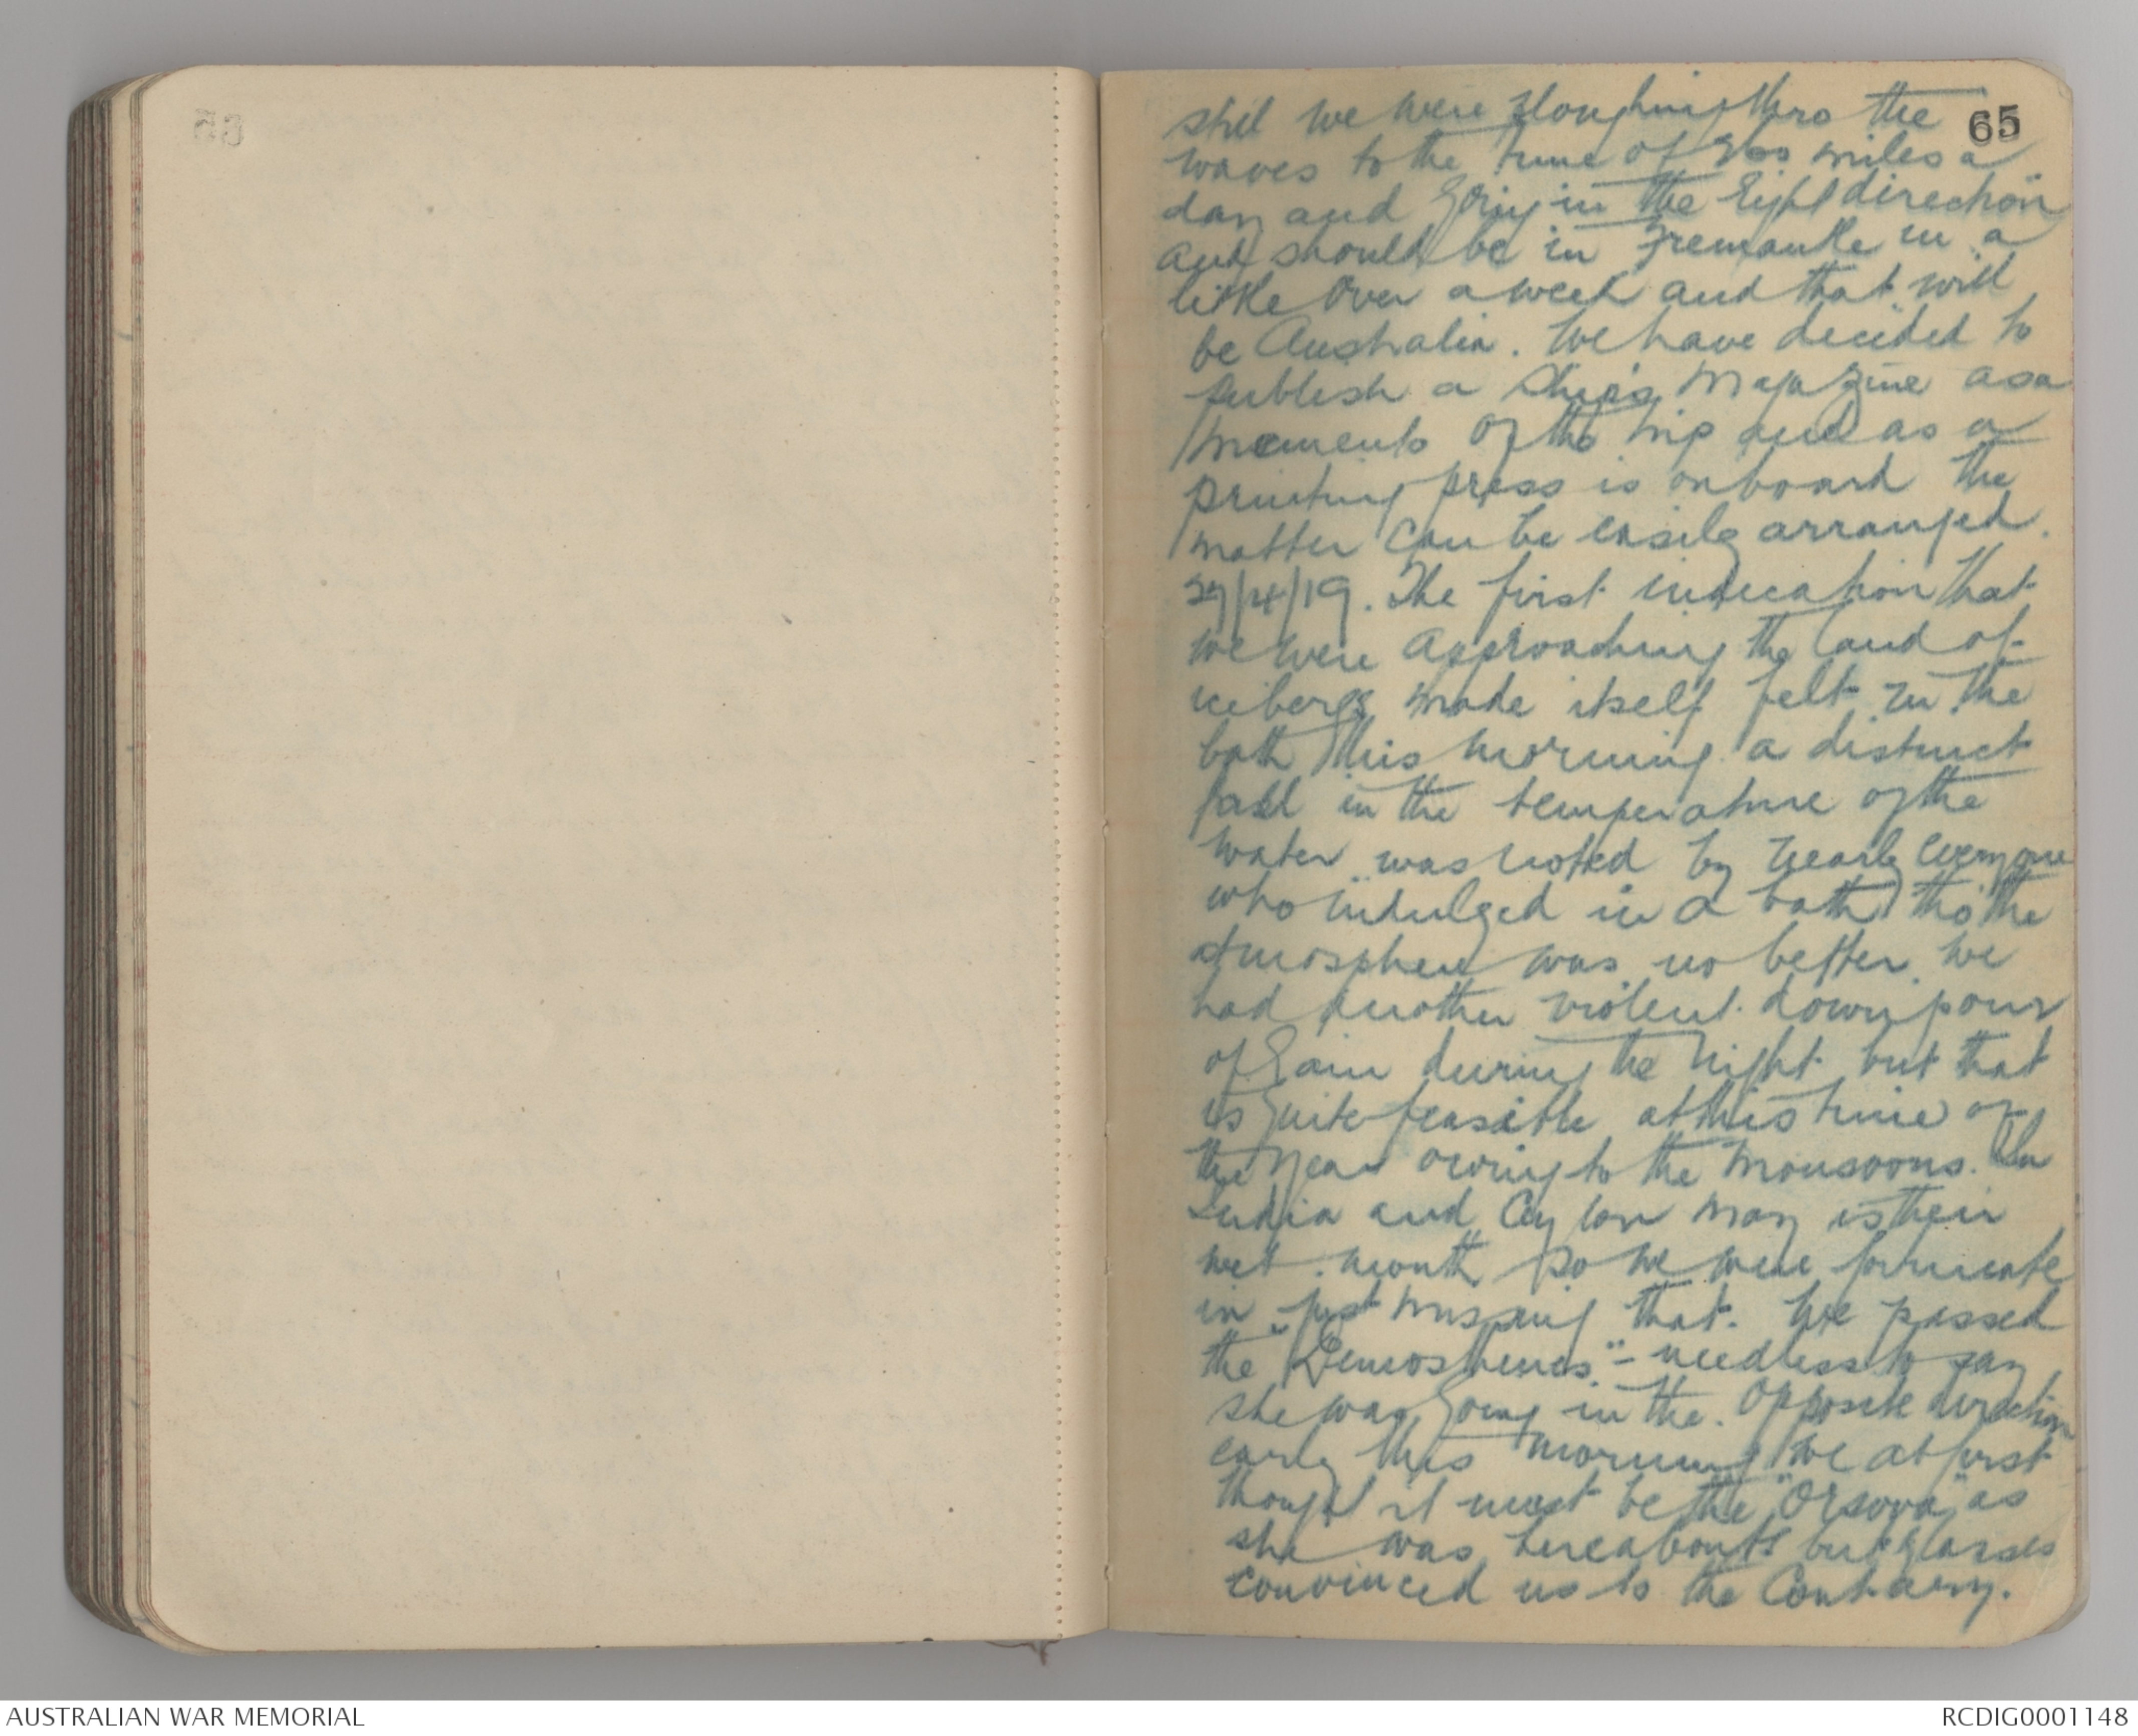 65
still we were ploughing thro the
waves to the tune of 300 miles a
day and going in the right direction
and should be in Fremantle in a
little over a week and that will
be Australia. We have decided to
publish a Ship's Magazine as a
memento of the trip and as a
printing press is onboard the
matter can be easily arranged.
27/4/19. The first indication that
we were approaching the land of
icebergs made itself felt in the
bath this morning a distinct
fall in the temperature of the
water was noted by nearly everyone
who indulged in a bath tho' the
atmosphere was no better we
had another violent downpour
of rain during the night but that
is quite feasible at this time of
the year owing to the monsoons. In
India and Ceylon May is their
wet month so we were fortunate
in just missing that. We passed
the "Demosthenes" - needless to say
she was going in the opposite direction
early this morning we at first
thought it must be the "Orsova" as
she was hereabouts but glasses
convinced us to the contrary.
AUSTRALIAN WAR MEMORIAL
RCDIG0001148